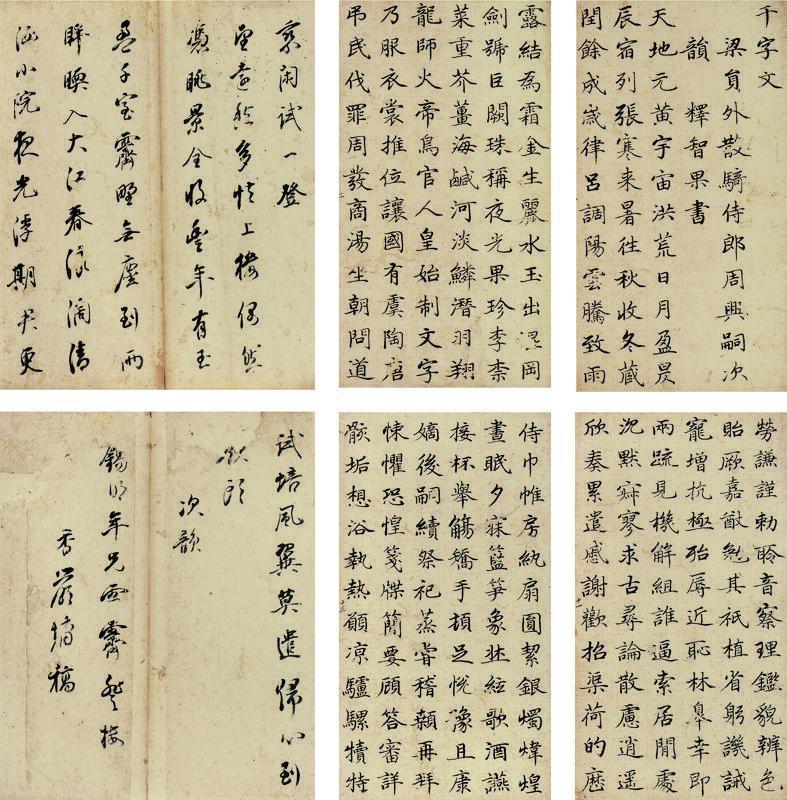 千字文
梁員外散騎侍郎周興嗣次
韻 釋智果書
天地元黃宇宙洪荒日月盈昃
辰宿列張寒来暑往秋收冬藏
閏餘成歲律呂調陽雲騰致雨
露結為霜金生麗水玉出崑岡
劍號巨闕珠稱夜光果珍李柰
菜重芥薑海鹹河淡鱗潛羽翔
龍師火帝鳥官人皇始制文字
乃服衣裳推位讓國有虞陶唐
弔民伐罪周發商湯坐朝問道
閑試一登
望遠愁多上樓偶然
憑眺景全收豐年有玉
盈千室霽野無塵到兩
眸暎入大江春清
涵小院夜光浮期君更
勞謙謹勅聆音察理鑑貌辨色
貽厥嘉猷勉其祗植省躬譏誡
寵增抗極殆辱近恥林皋幸即
兩疏見機解組誰逼索居閒處
沉默寂寥求古尋論散慮逍遙
欣奏累遣慼謝歡招渠荷的歷
侍巾帷房紈扇圓絜銀燭煒煌
晝眠夕寐籃笋象牀絃歌酒讌
接杯舉觴矯手頓足悅豫且康
嫡後嗣續祭祀蒸嘗稽顙再拜
悚懼恐惶箋牒簡要顧答審詳
骸垢想浴執熱願凉驢騾犢特
試培風翼莫遣歸心到
頭
次韻
錫年兄雪霽登樓
香巖稿